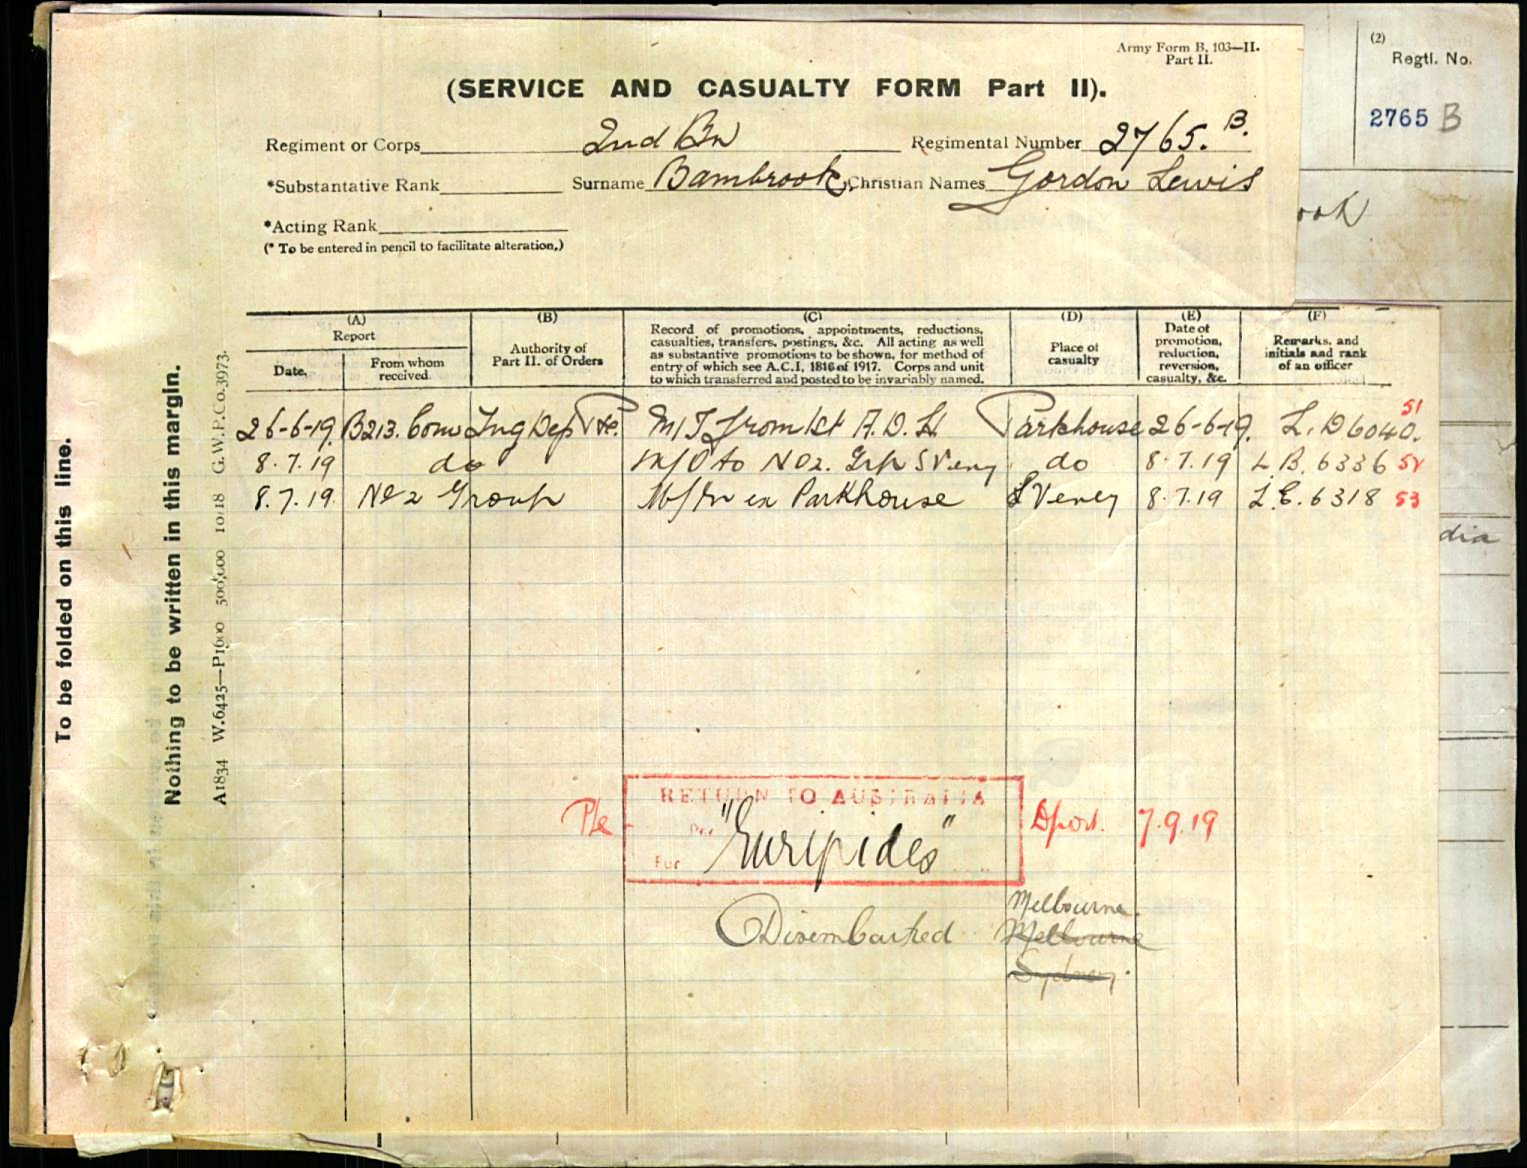 Army Form B. 103—II.
Part II.
(2)
Regtl. No.
2765 B
(SERVICE AND CASUALTY FORM Part II).
Regiment or Corps 2nd Bn Regimental Number 2765. B.
*Substantative Rank Surname Bambrook, Christian Names Gordon Lewis
ook
*Acting Rank
(* To be entered in pencil to facilitate alteration.)
(A) Report
Date.
From whom received
(B)
Authority of Part II. of Orders
(C)
Record of promotions, appointments, reductions,
casualties, transfers, postings, &c. All acting as well
as substantive promotions to be shown, for method of
entry of which see A.C.I, 1816 of 1917. Corps and unit
to which transferred and posted to be invariably named.
(D)
Place of casualty
(E)
Date of promotion, reduction, reversion, casualty, &c.
(F)
Remarks, and initials and rank of an officer
26-6-19. B213. Com Trng Dep Pte. M/I from 1st A.D.H. Parkhouse 26-6-19. L.D6040. 51
8.7.19 do M/O to No 2. Grp S Veny do 8.7.19 L.B.6336 52
8.7.19. No 2 Group M/In ex Parkhouse S Veney 8.7.19 L.E.6318 53
dia
RETURN TO AUSTRALIA
Pte Per "Euripides" Dport. 7.9.19
For
Disembarked Melbourne.
Melbourne
Sydney.
To be folded on this line.
Nothing to be written in this margin.
A1834 W.6425—P1600 500,000 10/18 G.W.P.Co.3973.